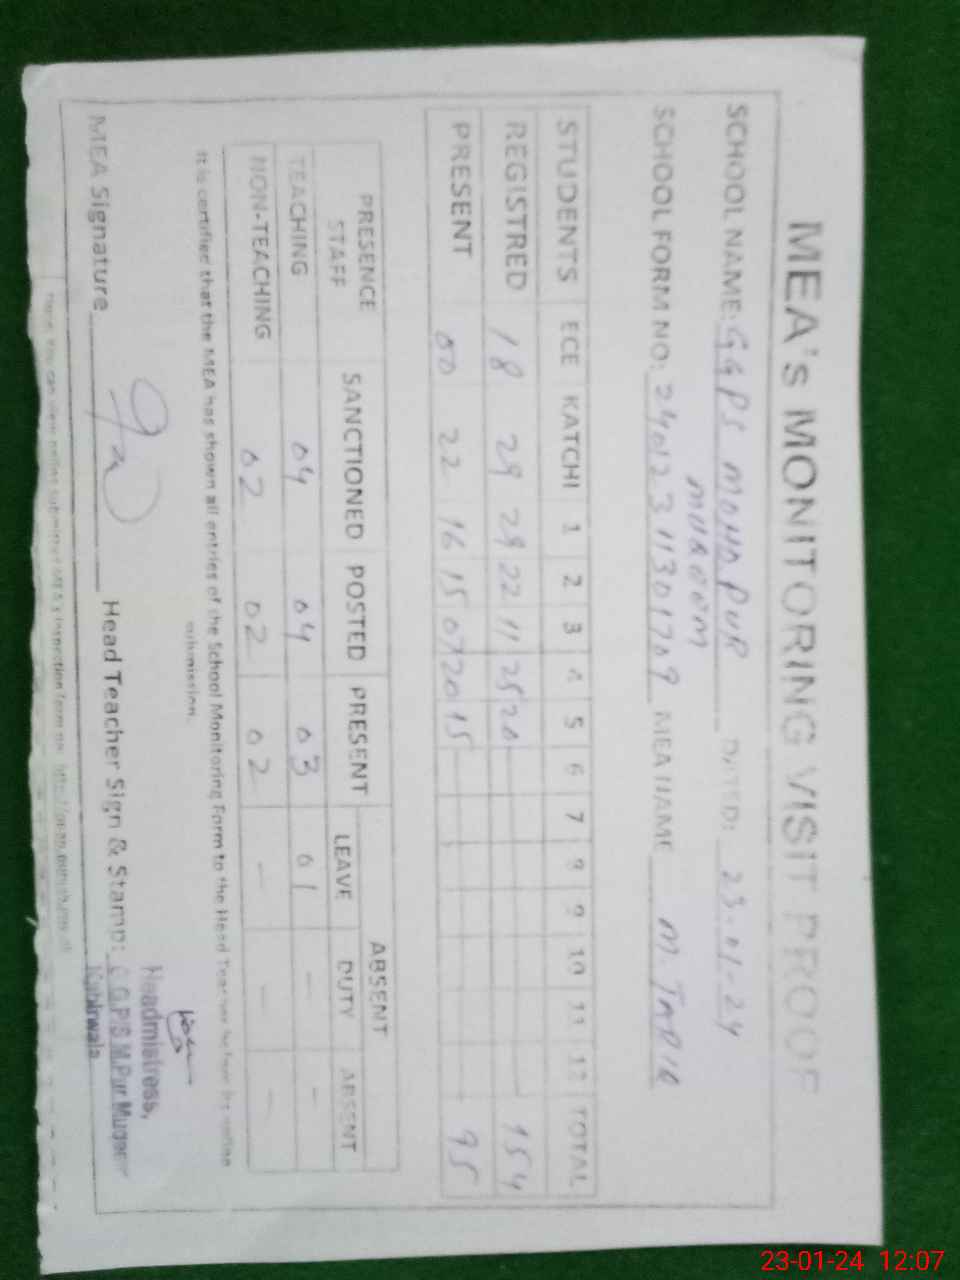 MEA's MONITORING VISIT PROOF
SCHOOL NAME: GGPS MOHD PUR DATED: 23-01-24
MUROOM
SCHOOL FORM NO: 24012311301709 MEA NAME M. TARIQ
STUDENTS ECE KATCHI 1 2 3 4 5 6 7 8 9 10 11 12 TOTAL
REGISTRED 18 29 29 22 11 25 20 154
PRESENT 00 22 16 15 07 20 15 95
PRESENCE ABSENT
STAFF SANCTIONED POSTED PRESENT LEAVE DUTY ABSENT
TEACHING 04 04 03 01 - -
NON-TEACHING 02 02 02 - - -
It is certified that the MEA has shown all entries of the School Monitoring Form to the Head Teacher before its online
submission.
MEA Signature Head Teacher Sign & Stamp:
Headmistress,
G.G.P.S M.Pur
Kabirwala
23-01-24 12:07